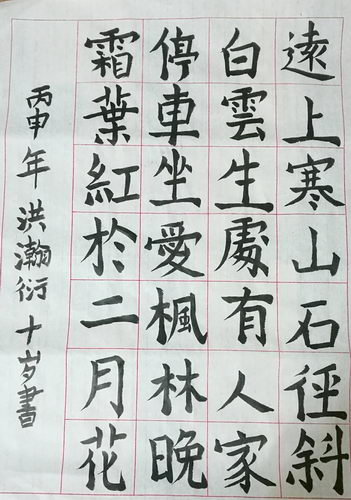 遠上寒山石徑斜
白雲生處有人家
停車坐愛楓林晚
霜葉紅於二月花
丙申年洪瀚衍十岁書